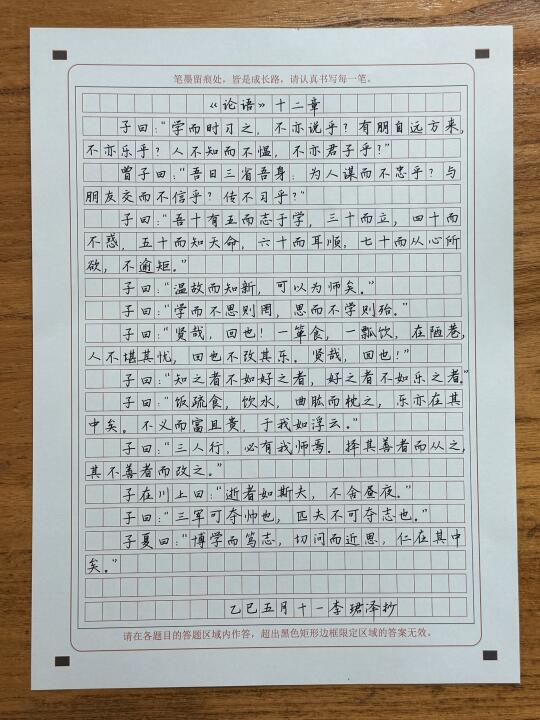 笔墨留痕处，皆是成长路，请认真书写每一笔。
《论语》十二章
子曰：“学而时习之，不亦说乎？有朋自远方来，
不亦乐乎？人不知而不愠，不亦君子乎？”
曾子曰：“吾日三省吾身：为人谋而不忠乎？与
朋友交而不信乎？传不习乎？”
子曰：“吾十有五而志于学，三十而立，四十而
不惑，五十而知天命，六十而耳顺，七十而从心所
欲，不逾矩。”
子曰：“温故而知新，可以为师矣。”
子曰：“学而不思则罔，思而不学则殆。”
子曰：“贤哉，回也！一箪食，一瓢饮，在陋巷，
人不堪其忧，回也不改其乐。贤哉，回也！”
子曰：“知之者不如好之者，好之者不如乐之者。”
子曰：“饭疏食，饮水，曲肱而枕之，乐亦在其
中矣。不义而富且贵，于我如浮云。”
子曰：“三人行，必有我师焉。择其善者而从之，
其不善者而改之。”
子在川上曰：“逝者如斯夫，不舍昼夜。”
子曰：“三军可夺帅也，匹夫不可夺志也。”
子夏曰：“博学而笃志，切问而近思，仁在其中
矣。”
乙巳五月十一李珺泽抄
请在各题目的答题区域内作答，超出黑色矩形边框限定区域的答案无效。